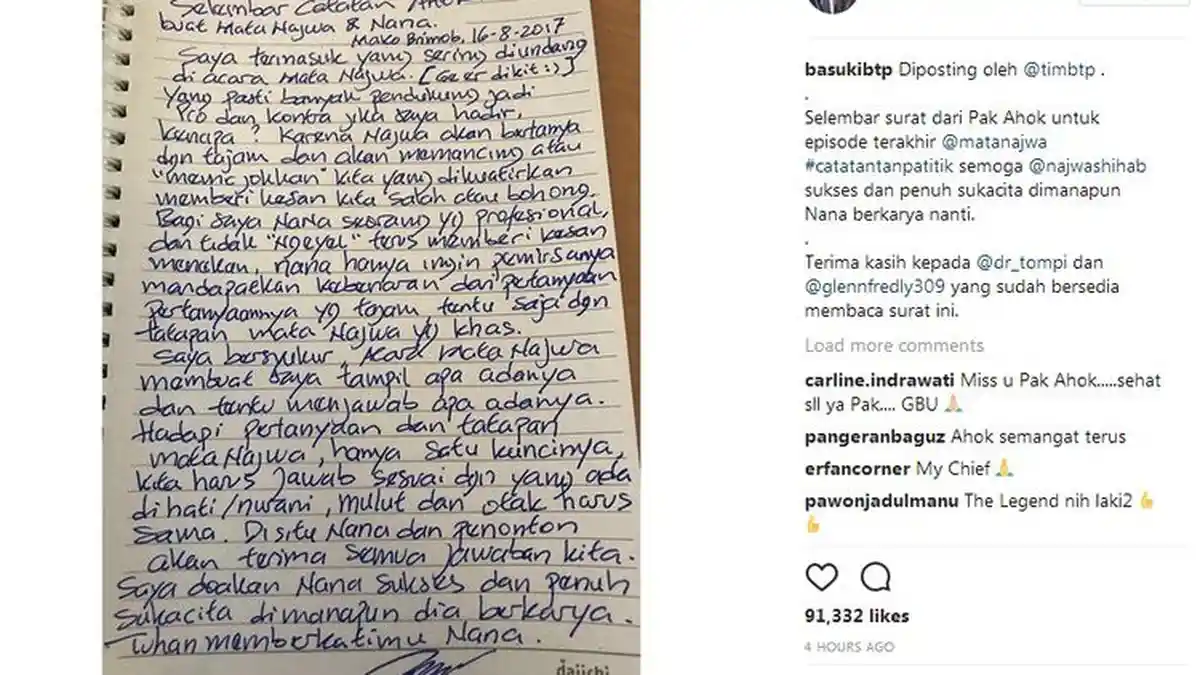 Selembar Catatan Ahok
buat Mata Najwa & Nana.
Mako Brimob, 16-8-2017
Saya termasuk yang sering diundang
di acara Mata Najwa. [Ge er dikit :)]
Yang pasti banyak pendukung jadi
Pro dan kontra jika saya hadir,
kenapa? Karena Najwa akan bertanya
dgn tajam dan akan memancing atau
"memojokkan" kita yang dikuatirkan
memberi kesan kita salah atau bohong.
Bagi saya Nana seorang yg profesional,
dan tidak "Ngeyel" terus memberi kesan
menekan, nana hanya ingin pemirsanya
mendapatkan kebenaran dari pertanyaan
pertanyaannya yg tajam tentu saja dgn
tatapan mata Najwa yg khas.
Saya bersyukur, Acara Mata Najwa
membuat saya tampil apa adanya
dan tentu menjawab apa adanya.
Hadapi pertanyaan dan tatapan
mata Najwa, hanya satu kuncinya,
kita harus jawab sesuai dgn yang ada
di hati/nurani, mulut dan otak harus
sama. Disitu Nana dan penonton
akan terima semua jawaban kita.
Saya doakan Nana sukses dan penuh
sukacita dimanapun dia berkarya.
Tuhan memberkatimu Nana.
daiichi
basukibtp Diposting oleh @timbtp .
.
Selembar surat dari Pak Ahok untuk
episode terakhir @matanajwa
#catatantanpatitik semoga @najwashihab
sukses dan penuh sukacita dimanapun
Nana berkarya nanti.
.
Terima kasih kepada @dr_tompi dan
@glennfredly309 yang sudah bersedia
membaca surat ini.
Load more comments
carline.indrawati Miss u Pak Ahok.....sehat
sll ya Pak.... GBU 🙏
pangeranbaguz Ahok semangat terus
erfancorner My Chief 🙏
pawonjadulmanu The Legend nih laki2 👍
👍
91,332 likes
4 HOURS AGO